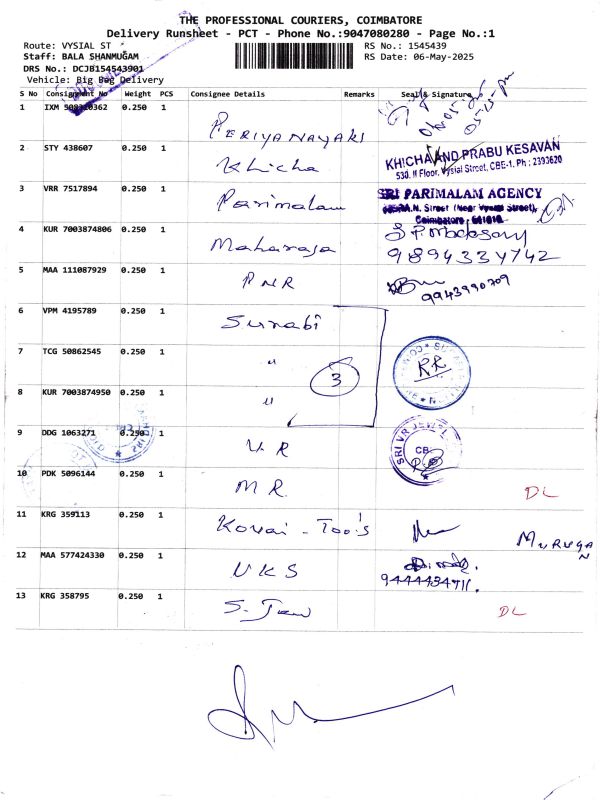 THE PROFESSIONAL COURIERS, COIMBATORE
Delivery Runsheet - PCT - Phone No.:9047080280 - Page No.:1
Route: VYSIAL ST
RS No.: 1545439
Staff: BALA SHANMUGAM
RS Date: 06-May-2025
DRS No.: DCJB154543901
Vehicle: Big Bag Delivery
S No Consignment No Weight PCS Consignee Details Remarks Seal & Signature
1 IXM 0.250 1 PERIYANAYAKI
2 STY 438607 0.250 1 Khicha
KHICHA AND PRABU KESAVAN
530, II Floor, Vysial Street, CBE-1. Ph : 2393620
3 VRR 7517894 0.250 1 Parimalam
SRI PARIMALAM AGENCY
Street (Near Vysial Street),
Coimbatore - 641018
4 KUR 7003874806 0.250 1 Maharaja
9894334742
5 MAA 111087929 0.250 1 PNR
9943990709
6 VPM 4195789 0.250 1 Surabi
7 TCG 50862545 0.250 1 "
3
RR
8 KUR 7003874950 0.250 1 "
9 DDG 1063271 0.250 1 V.R
SRI VR JEWEL
CB
10 PDK 5096144 0.250 1 M R.
DL
11 KRG 359113 0.250 1 Kovai - Too's
MURUGAN
12 MAA 577424330 0.250 1 UKS
9444434711.
13 KRG 358795 0.250 1 S. Jew
DL